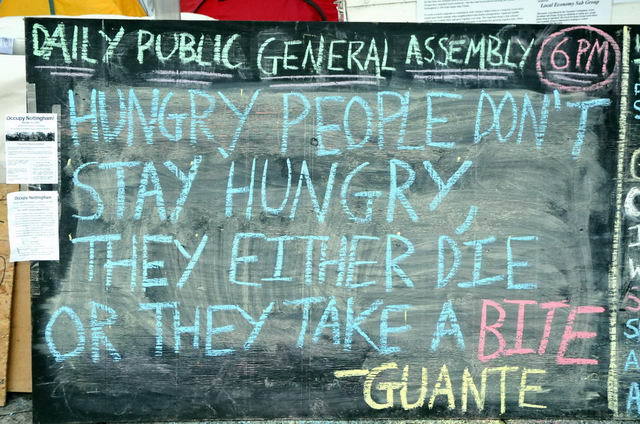 Local Economy Sub Group
DAILY PUBLIC GENERAL ASSEMBLY 6 PM
HUNGRY PEOPLE DON'T
STAY HUNGRY,
THEY EITHER DIE
OR THEY TAKE A BITE
-GUANTE
Occupy Nottingham
Occupy Nottingham